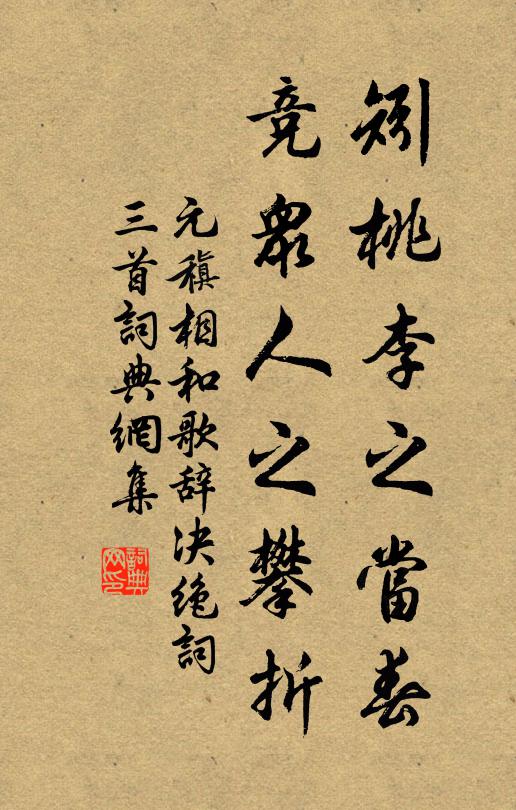 矧桃李之當春
競衆人之攀折
元稹相和歌辞决绝詞
三首詞典網集
詞典网印